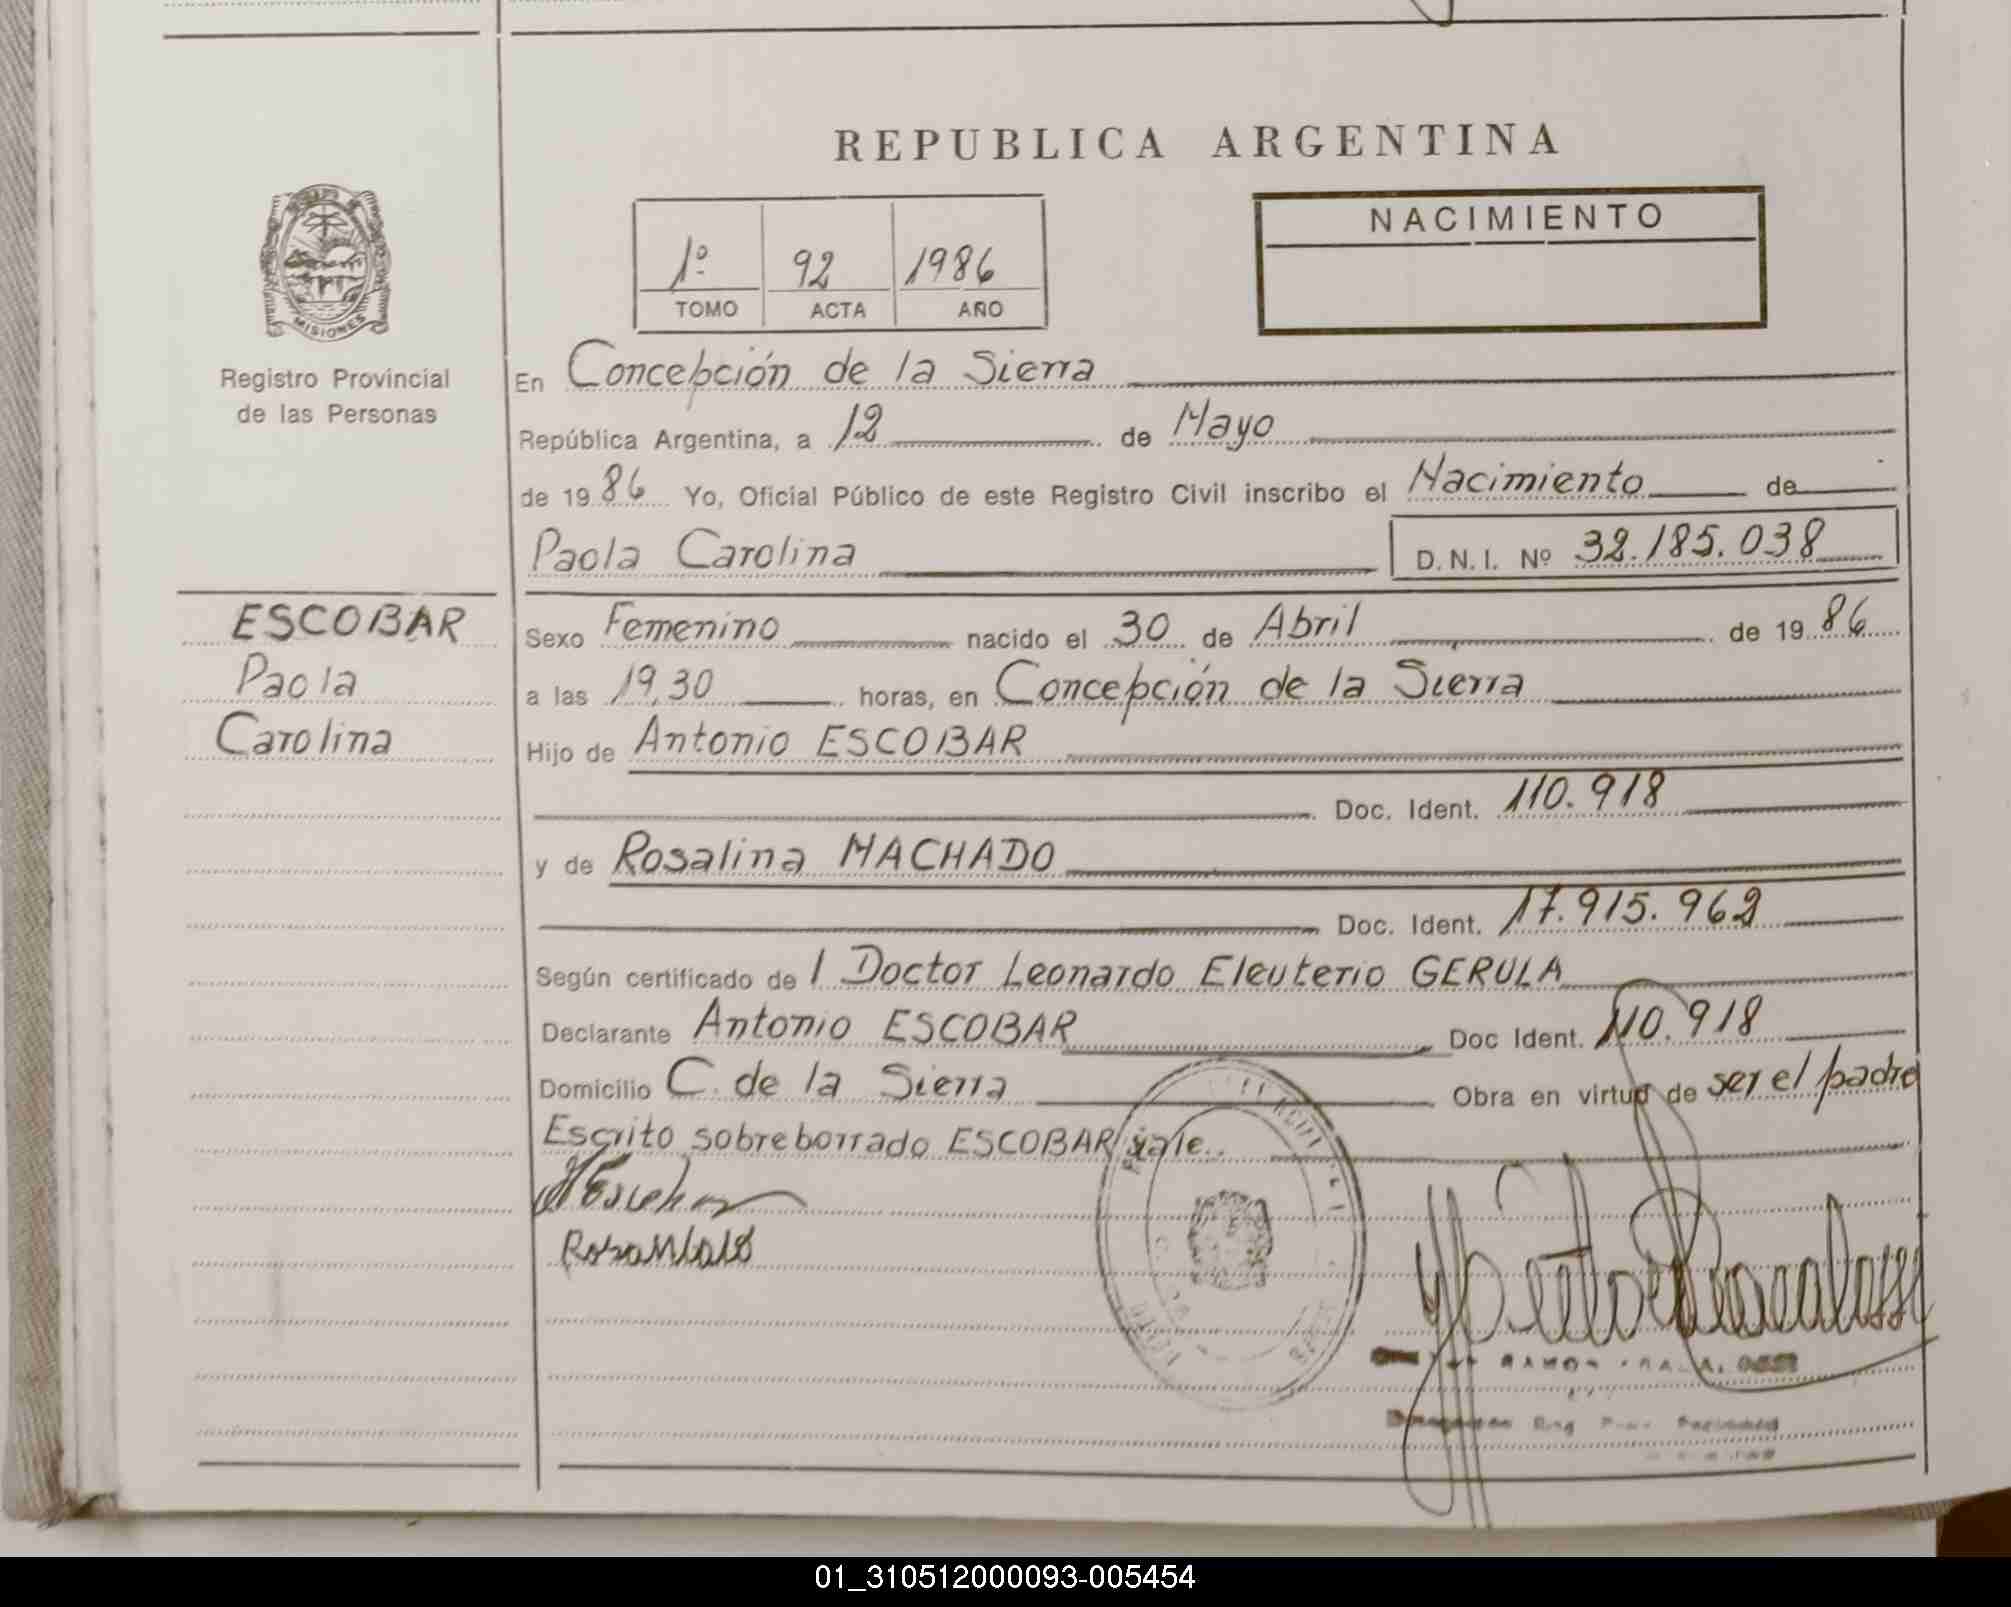 REPUBLICA ARGENTINA
1º 92 1986
TOMO ACTA AÑO
NACIMIENTO
MISIONES
Registro Provincial
de las Personas
ESCOBAR
Paola
Carolina
En Concepción de la Sierra
República Argentina, a 12 de Mayo
de 1986 Yo, Oficial Público de este Registro Civil inscribo el Nacimiento de
Paola Carolina D.N.I. Nº 32.185.038
Sexo Femenino nacido el 30 de Abril de 1986
a las 19,30 horas, en Concepción de la Sierra
Hijo de Antonio ESCOBAR
Doc. Ident. 110.918
y de Rosalina MACHADO
Doc. Ident. 17.915.962
Según certificado de l Doctor Leonardo Eleuterio GERULA
Declarante Antonio ESCOBAR Doc Ident. 110.918
Domicilio C. de la Sierra Obra en virtud de ser el padre
Escrito sobreborrado ESCOBAR vale.
RAMON
01_310512000093-005454